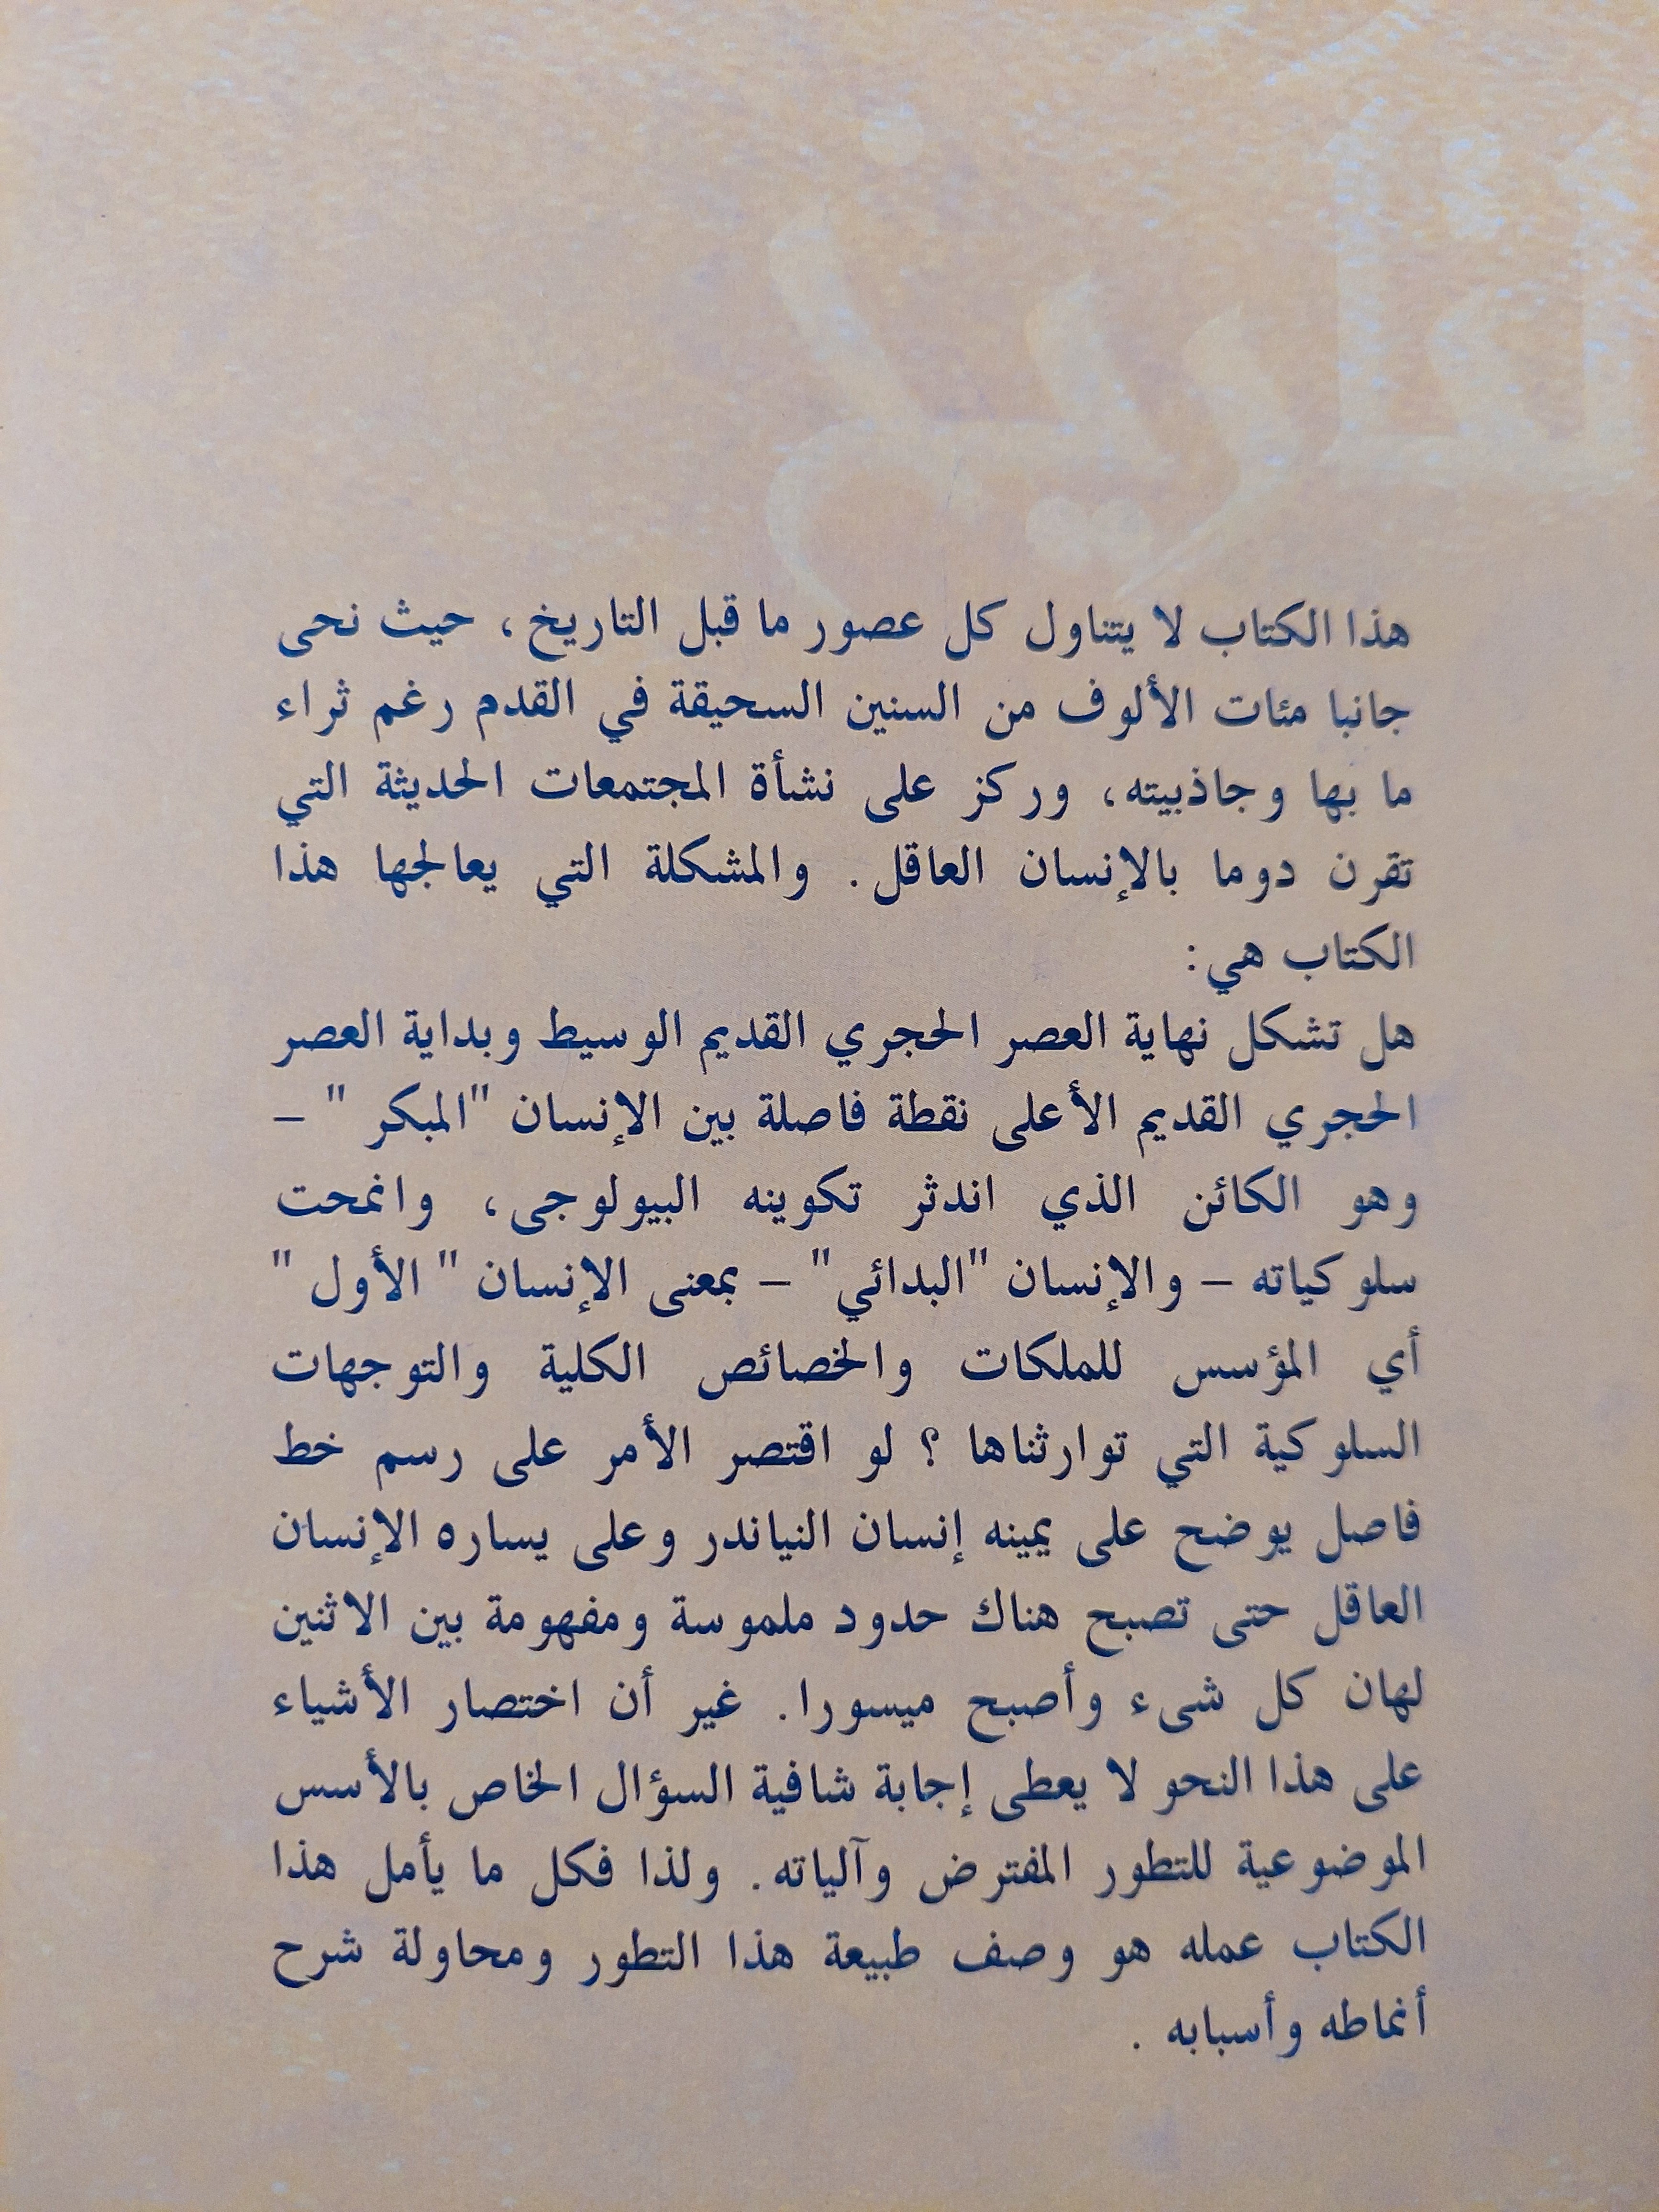 تاريخ
هذا الكتاب لا يتناول كل عصور ما قبل التاريخ، حيث نحى
جانبا مئات الألوف من السنين السحيقة في القدم رغم ثراء
ما بها وجاذبيته، وركز على نشأة المجتمعات الحديثة التي
تقرن دوما بالإنسان العاقل. والمشكلة التي يعالجها هذا
الكتاب هي:
هل تشكل نهاية العصر الحجري القديم الوسيط وبداية العصر
الحجري القديم الأعلى نقطة فاصلة بين الإنسان "المبكر" –
وهو الكائن الذي اندثر تكوينه البيولوجى، وانمحت
سلوكياته – والإنسان "البدائي" – بمعنى الإنسان " الأول "
أي المؤسس للملكات والخصائص الكلية والتوجهات
السلوكية التي توارثناها ؟ لو اقتصر الأمر على رسم خط
فاصل يوضح على يمينه إنسان النياندر وعلى يساره الإنسان
العاقل حتى تصبح هناك حدود ملموسة ومفهومة بين الاثنين
لهان كل شىء وأصبح ميسورا. غير أن اختصار الأشياء
على هذا النحو لا يعطى إجابة شافية السؤال الخاص بالأسس
الموضوعية للتطور المفترض وآلياته. ولذا فكل ما يأمل هذا
الكتاب عمله هو وصف طبيعة هذا التطور ومحاولة شرح
أنماطه وأسبابه .